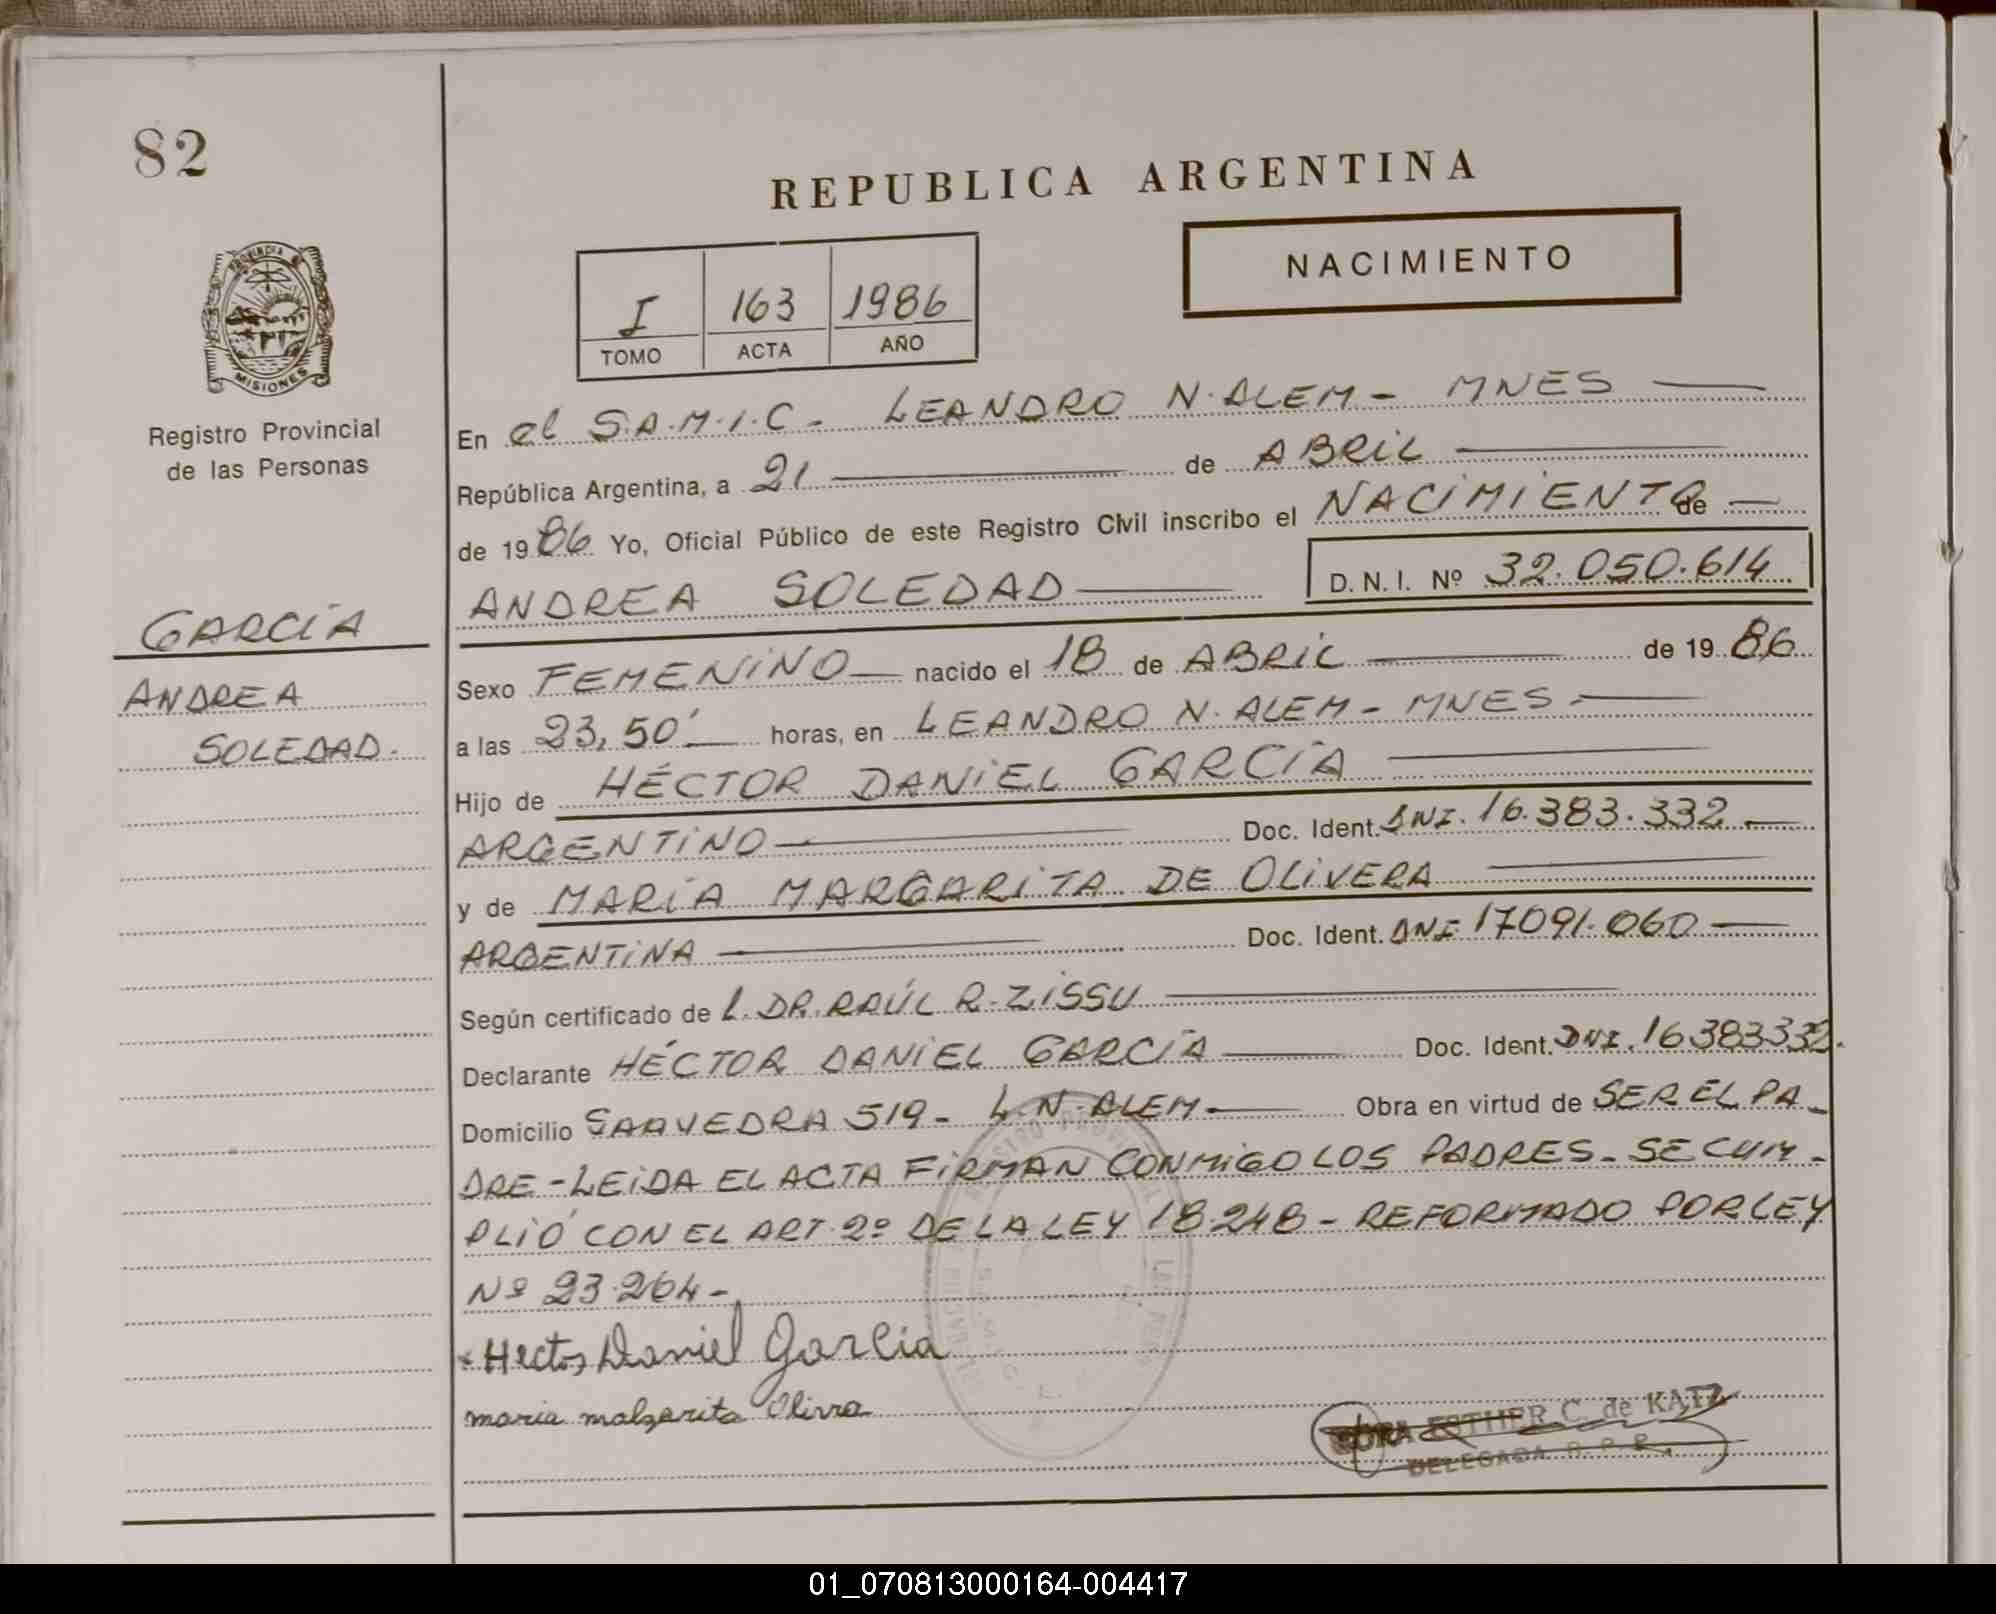 82
REPUBLICA ARGENTINA
NACIMIENTO
I 163 1986
TOMO ACTA AÑO
PROVINCIA DE
MISIONES
Registro Provincial
de las Personas
GARCÍA
ANDREA
SOLEDAD.
En el S.A.M.I.C - LEANDRO N. ALEM - MNES
República Argentina, a 21 de ABRIL
de 1986 Yo, Oficial Público de este Registro Civil inscribo el NACIMIENTO de
ANDREA SOLEDAD D. N. I. Nº 32.050.614
Sexo FEMENINO nacido el 18 de ABRIL de 1986
a las 23,50' horas, en LEANDRO N. ALEM - MNES -
Hijo de HÉCTOR DANIEL GARCÍA
ARGENTINO Doc. Ident. DNI. 16.383.332
y de MARÍA MARGARITA DE OLIVERA
ARGENTINA Doc. Ident. DNI 17091.060
Según certificado de l. DR. RAÚL R. ZISSU
Declarante HÉCTOR DANIEL GARCÍA Doc. Ident. DNI. 16383332.
Domicilio SAAVEDRA 519 - L. N. ALEM Obra en virtud de SER EL PA-
DRE - LEIDA EL ACTA FIRMAN CONMIGO LOS PADRES - SE CUM-
PLIÓ CON EL ART 2º DE LA LEY 18.248 - REFORMADO POR LEY
Nº 23.264 -
Hector Daniel Garcia
maria malgarita Olivra
ESTHER C. de KATZ
DELEGADA R. P. P.
01_070813000164-004417